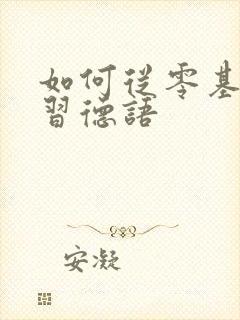 如何從零基
習德語
安凝